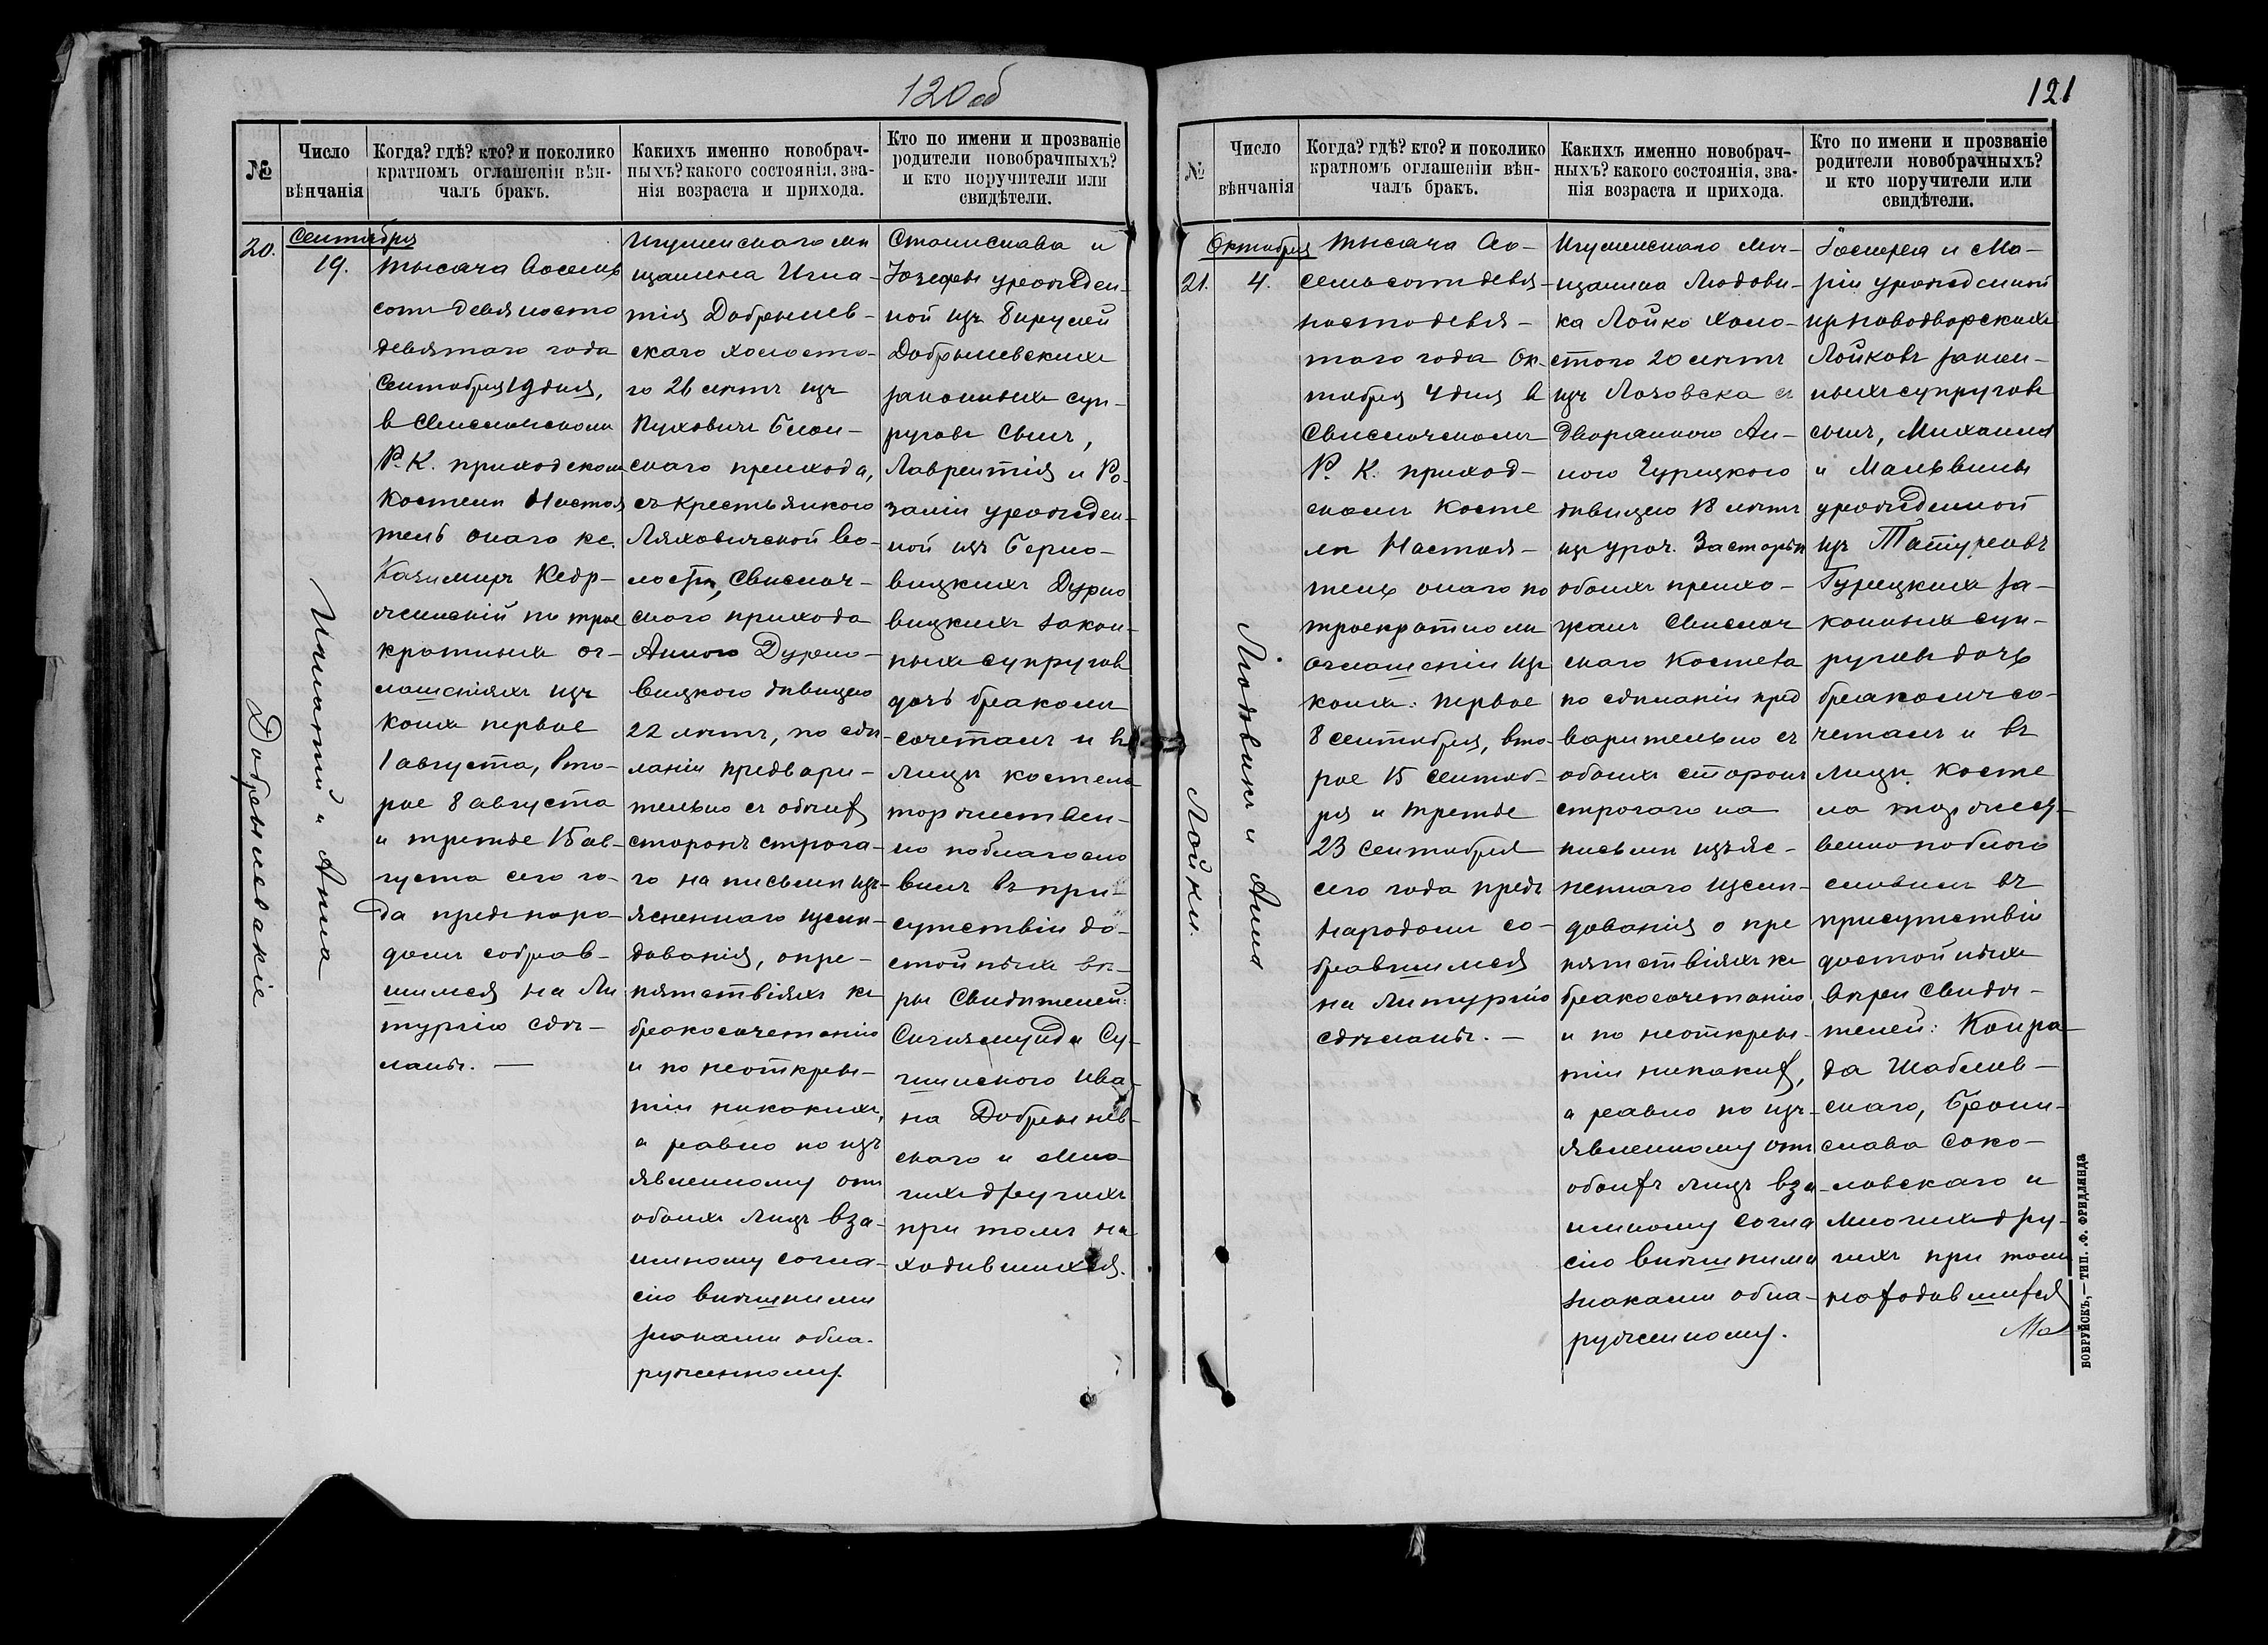 120 об
№
Число
вѣнчанія
Когда? гдѣ? кто? и поколико
кратномъ оглашеніи вѣн-
чалъ бракъ.
Какихъ именно новобрач-
ныхъ? какого состоянія, зва-
нія возраста и прихода.
Кто по имени и прозваніе
родители новобрачныхъ?
и кто поручители или
свидѣтели.
20.
Сентября
19.
Игнатій и Анна
Добрыневскіе
тысяча восемь
сотъ девяносто
девятаго года
Сентября 19 дня,
в Свислочскомъ
Р. К. приходскомъ
костелѣ Настоя
тель онаго кс.
Казимиръ Кедр-
жинскій по трое
кратныхъ ог-
лашеніяхъ изъ
коихъ первое
1 августа, вто-
рое 8 августа
и третье 15 ав-
густа сего го-
да предъ наро-
домъ собрав-
шимся на Ли
тургію сдѣ-
ланы. —
Игуменскаго мѣ
щанина Игна-
тія Добрынев-
скаго холосто-
го 26 лѣтъ изъ
Пуховичъ Блон-
скаго прихода,
съ крестьянкою
Ляховичской во-
лости, Свислоч-
скаго прихода
Анною Дурно-
вицкою дѣвицею
22 лѣтъ, по сдѣ
ланіи предвари-
тельно съ обѣихъ
сторонъ строга-
го на письмѣ изъ-
ясненнаго изслѣ-
дованія, о пре-
пятствіяхъ къ
бракосочетанію
и по неоткры-
тіи никакихъ,
а равно по изъ
явленному отъ
обоихъ лицъ вза-
имному согла-
сію внѣшними
знаками обна-
руженному.
Станислава и
Юзефы урожден-
ной изъ
Добрыневскихъ
законныхъ суп-
руговъ сынъ,
Лаврентія и Ро-
заліи урожден-
ной изъ Берно-
вицкихъ Дурно
вицкихъ закон-
ныхъ супруговъ
дочь бракомъ
сочеталъ и въ
лицѣ костела
торжествен-
но поблагосло
вилъ въ при-
сутствіи до-
стойныхъ вѣ-
ры Свидѣтелей:
Сигизмунда Су-
Ива-
на Добрынев-
скаго и мно-
гихъ другихъ
при томъ на
ходившихся.
121
№
Число
вѣнчанія
Когда? гдѣ? кто? и поколико
кратномъ оглашеніи вѣн-
чалъ бракъ.
Какихъ именно новобрач-
ныхъ? какого состоянія, зва-
нія возраста и прихода.
Кто по имени и прозваніе
родители новобрачныхъ?
и кто поручители или
свидѣтели.
Октября
21.
4.
Людвикъ и Анна
Лойки.
тысяча во-
семьсотъ девя-
ностодевя-
таго года Ок-
тября 4 дня в
Свислочскомъ
Р. К. приход-
скомъ косте
лѣ Настоя-
тель онаго по
троекратномъ
оглашеніи изъ
коихъ: первое
8 сентября, вто-
рое 15 сентяб-
ря и третье
23 сентября
сего года предъ
народомъ со-
бравшимся
на Литургію
сдѣланы. —
Игуменскаго мѣ-
щанина Людови-
ка Лойко холо-
стого 20 лѣтъ
изъ Лозовска съ
дворянкою Ан-
ною Гурецкою
дѣвицею 18 лѣтъ
изъ уроч. Застарь
обоихъ прихо-
жанъ Свислоч
скаго костела
по сдѣланіи пред
варительно съ
обоихъ сторонъ
строгаго на
письмѣ изъяс-
неннаго изслѣ-
дованія о пре
пятствіяхъ къ
бракосочетанію
и по неоткры-
тіи никакихъ,
а равно по изъ-
явленному отъ
обоихъ лицъ вза-
имному согла
сію внѣшними
знаками обна-
руженному.
и Ма-
ріи урожденной
изъ Новодворскихъ
Лойковъ закон-
ныхъ супруговъ
сынъ, Михаила
и Мальвины
урожденной
изъ
Гурецкихъ за-
конныхъ суп-
руговъ дочь
бракомъ со-
четалъ и въ
лицѣ косте
ла торжест-
венно поблаго
словилъ въ
присутствіи
достойныхъ
вѣры свидѣ-
телей: Конра-
да Шаблев-
скаго, Брони-
слава Соко-
ловскаго и
многихъ дру-
гихъ при томъ
находившихся
БОБРУЙСКЪ,—ТИП. Ф. ФРИДЛЯНДА